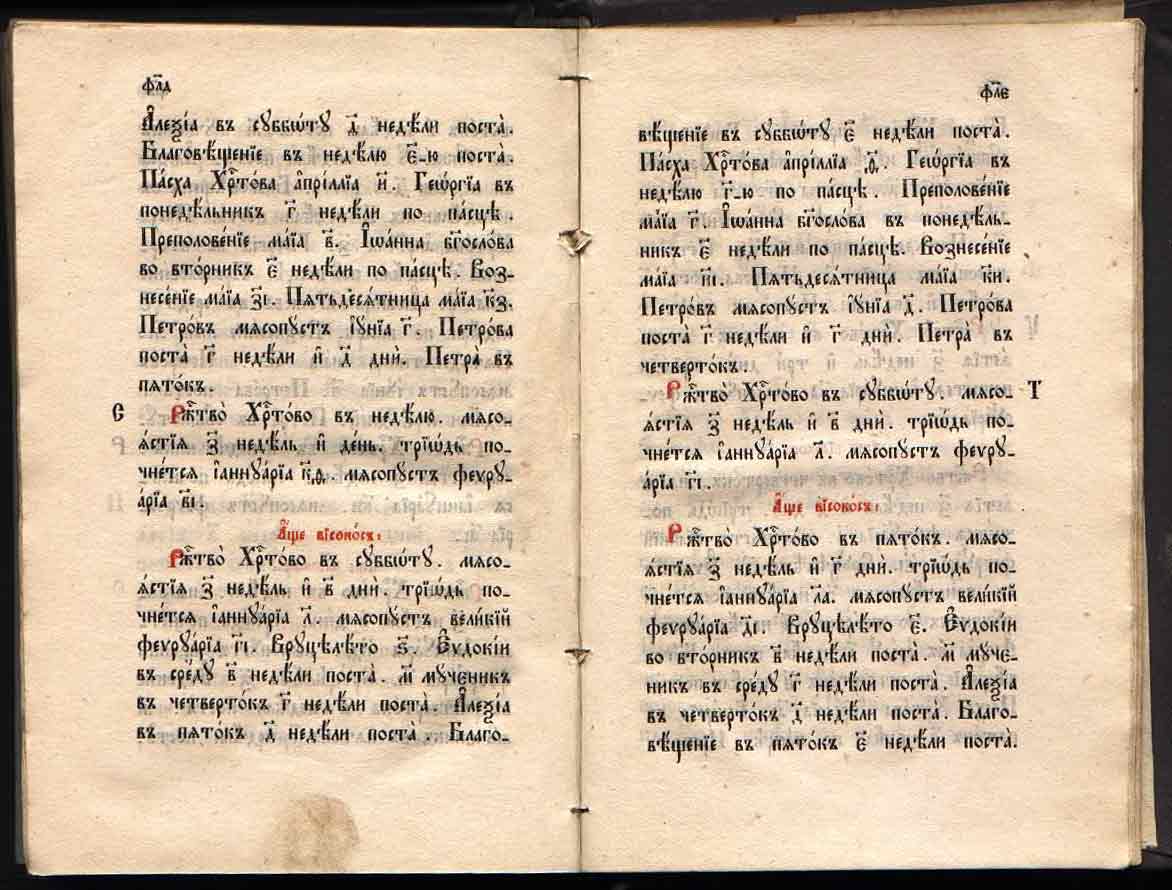 фл҃д
А҆леѯі́а въ сꙋббѡ́тꙋ д҃ недѣ́ли поста̀.
Благовѣ́щенїе въ недѣ́лю є҃-ю поста̀.
Па́сха Хрⷭ҇то́ва а҆прі́ллїа и҃. Геѡ́ргїа въ
понедѣ́льникъ г҃ недѣ́ли по па́сцѣ.
Преполове́нїе ма́їа в҃. І҆ѡа́нна бг҃осло́ва
во вто́рникъ є҃ недѣ́ли по па́сцѣ. Воз-
несе́нїе ма́їа з҃і. Пѧтьдесѧ́тница ма́їа к҃з.
Петро́въ мѧсопꙋ́стъ і҆ꙋ́нїа г҃. Петро́ва
поста̀ г҃ недѣ́ли и҆ д҃ дни̑. Петра̀ въ
пѧто́къ.
Є Рж҇тво̀ Хрⷭ҇то́во въ недѣ́лю. мѧсо-
ѧ́стїѧ з҃ недѣ́ль и҆ де́нь. трїѡ́дь по-
чне́тсѧ і҆аннꙋа́рїа к҃ѳ. мѧсопꙋ́стъ феврꙋ-
а́рїа в҃і.
А҆́ще високо́съ:
Рж҇тво̀ Хрⷭ҇то́во въ сꙋббѡ́тꙋ. мѧсо-
ѧ́стїѧ з҃ недѣ́ль и҆ в҃ дни̑. трїѡ́дь по-
чне́тсѧ і҆аннꙋа́рїа л҃. мѧсопꙋ́стъ вели́кїй
феврꙋа́рїа г҃і. Врꙋцѣлѣ́то ѕ҃. Є҆ѵдокі́и
въ сре́дꙋ в҃ недѣ́ли поста̀. м҃ мꙋ́ченикъ
въ четверто́къ г҃ недѣ́ли поста̀. А҆леѯі́а
въ пѧто́къ д҃ недѣ́ли поста̀. Благо-
фл҃є
вѣ́щенїе въ сꙋббѡ́тꙋ є҃ недѣ́ли поста̀.
Па́сха Хрⷭ҇то́ва а҆прі́ллїа ѳ҃. Геѡ́ргїа въ
недѣ́лю г҃-ю по па́сцѣ. Преполове́нїе
ма́їа г҃. І҆ѡа́нна бг҃осло́ва въ понедѣ́ль-
никъ є҃ недѣ́ли по па́сцѣ. Вознесе́нїе
ма́їа и҃і. Пѧтьдесѧ́тница ма́їа к҃и.
Петро́въ мѧсопꙋ́стъ і҆ꙋ́нїа д҃. Петро́ва
поста̀ г҃ недѣ́ли и҆ г҃ дни̑. Петра̀ въ
четверто́къ.
Рж҇тво̀ Хрⷭ҇то́во въ сꙋббѡ́тꙋ. мѧсо- Т
ѧ́стїѧ з҃ недѣ́ль и҆ в҃ дни̑. трїѡ́дь по-
чне́тсѧ і҆аннꙋа́рїа л҃. мѧсопꙋ́стъ феврꙋ-
а́рїа г҃і.
А҆́ще високо́съ:
Рж҇тво̀ Хрⷭ҇то́во въ пѧто́къ. мѧсо-
ѧ́стїѧ з҃ недѣ́ль и҆ г҃ дни̑. трїѡ́дь по-
чне́тсѧ і҆аннꙋа́рїа л҃а. мѧсопꙋ́стъ вели́кїй
феврꙋа́рїа д҃і. Врꙋцѣлѣ́то є҃. Є҆ѵдокі́и
во вто́рникъ в҃ недѣ́ли поста̀. м҃ мꙋ́че-
никъ въ сре́дꙋ г҃ недѣ́ли поста̀. А҆леѯі́а
въ четверто́къ д҃ недѣ́ли поста̀. Благо-
вѣ́щенїе въ пѧто́къ є҃ недѣ́ли поста̀.